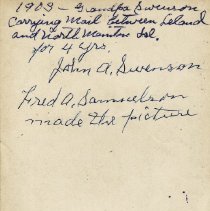 1903 - Grandpa Swenson
Carrying Mail between Leland
and North Manitou Isl.
for 4 yrs.
John A. Swenson
Fred A. Samuelson
made the picture